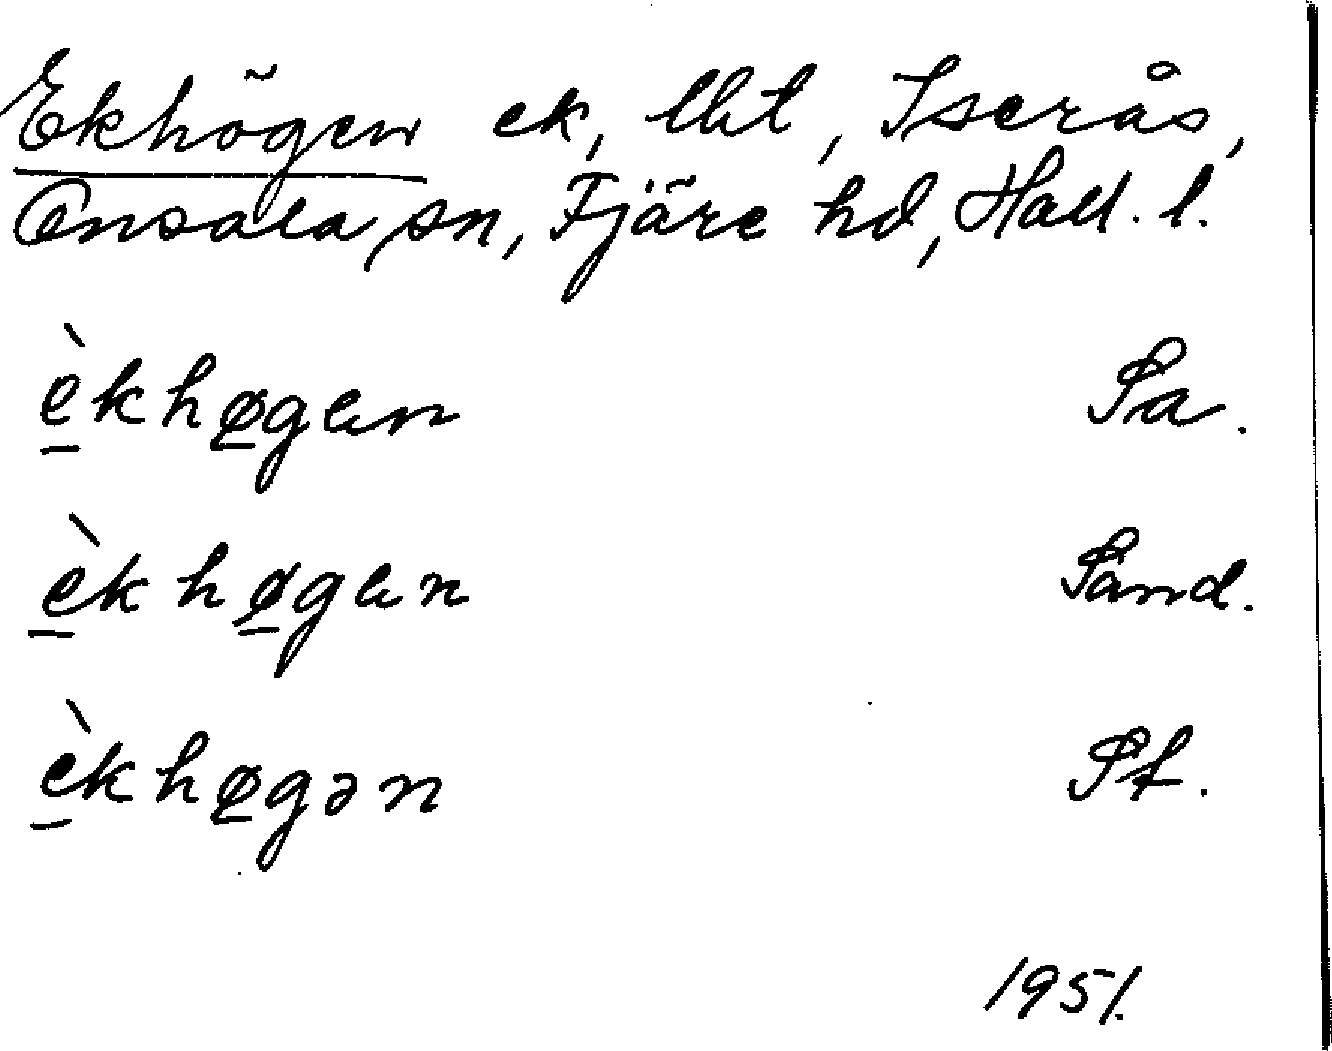 Ekhögen ek, lht, Iserås,
Onsala sn, Fjäre hd, Hall. l.
è̠khø̠gen Sa.
è̠khø̠gen Sand.
è̠khø̠gən St.
1951.